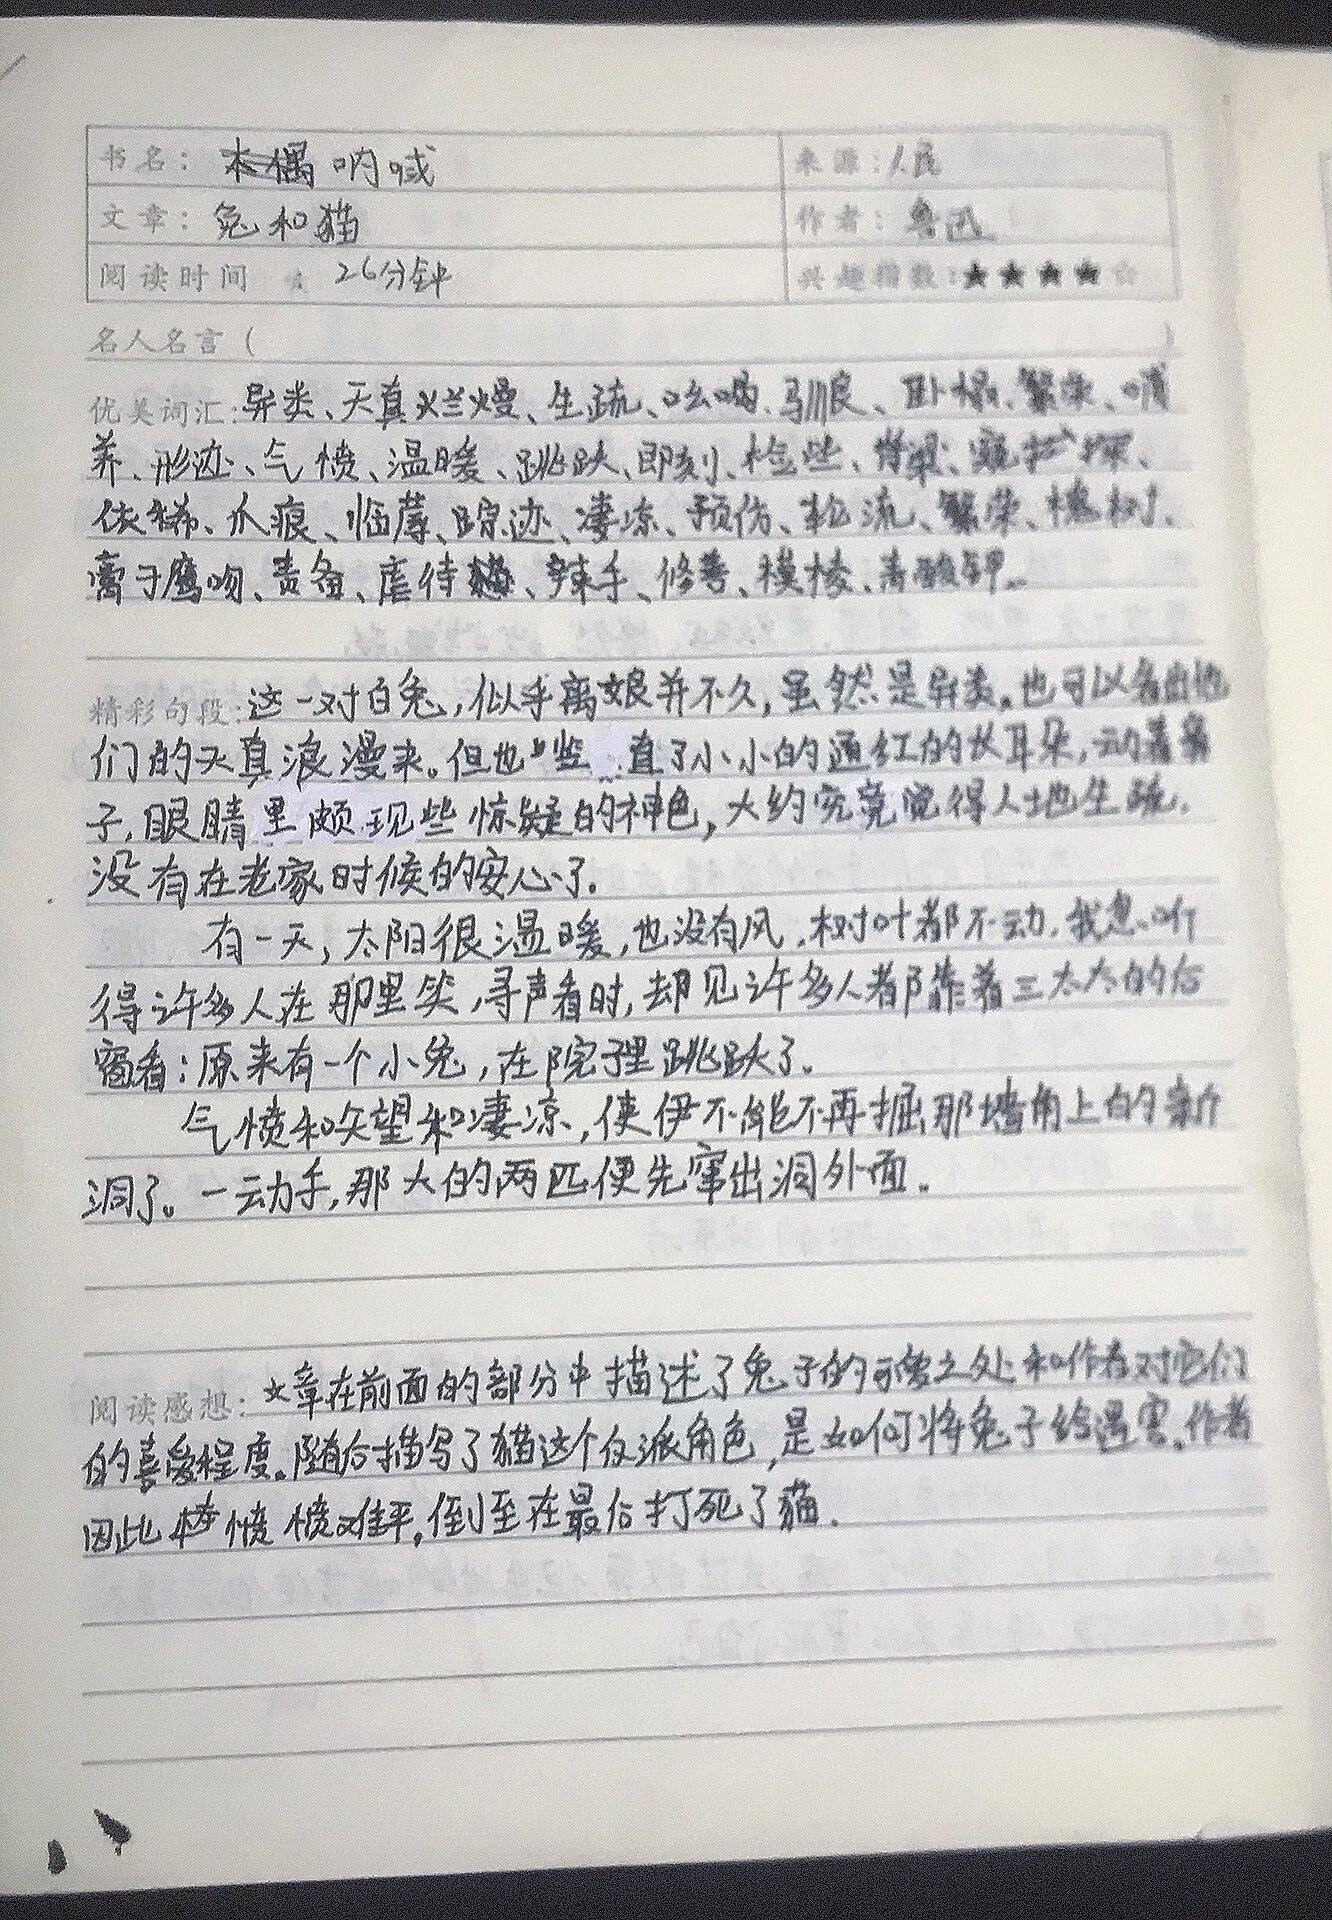 书名：木偶 呐喊 来源：人民
文章：兔和猫 作者：鲁迅
阅读时间： 26分钟 兴趣指数：★★★★☆
名人名言（ ）
优美词汇：异类、天真烂熳、生疏、吆喝、驯良、卧榻、繁荣、哺
养、形迹、气愤、温暖、跳跃、即刻、检些、脊梁、窥探、
依稀、爪痕、临蓐、踪迹、凄凉、预伤、轮流、繁荣、槐树、
膏于鹰吻、责备、虐待猫、辣手、修善、模棱、青酸钾。
精彩句段：这一对白兔，似乎离娘并不久，虽然是异类，也可以看出他
们的天真浪漫来。但也 竖直了小小的通红的长耳朵，动着鼻
子，眼睛里颇现些惊疑的神色，大约究竟觉得人地生疏，
没有在老家时候的安心了。
有一天，太阳很温暖，也没有风，树叶都不动，我忽听
得许多人在那里笑，寻声看时，却见许多人都靠着三太太的后
窗看：原来有一个小兔，在院子里跳跃了。
气愤和失望和凄凉，使伊不能不再掘那墙角上的新
洞了。一动手，那大的两匹便先窜出洞外面。
阅读感想：文章在前面的部分中描述了兔子的可爱之处和作者对它们
的喜爱程度。随后描写了猫这个反派角色，是如何将兔子给遇害。作者
因此 愤愤难平，倒至在最后打死了猫。